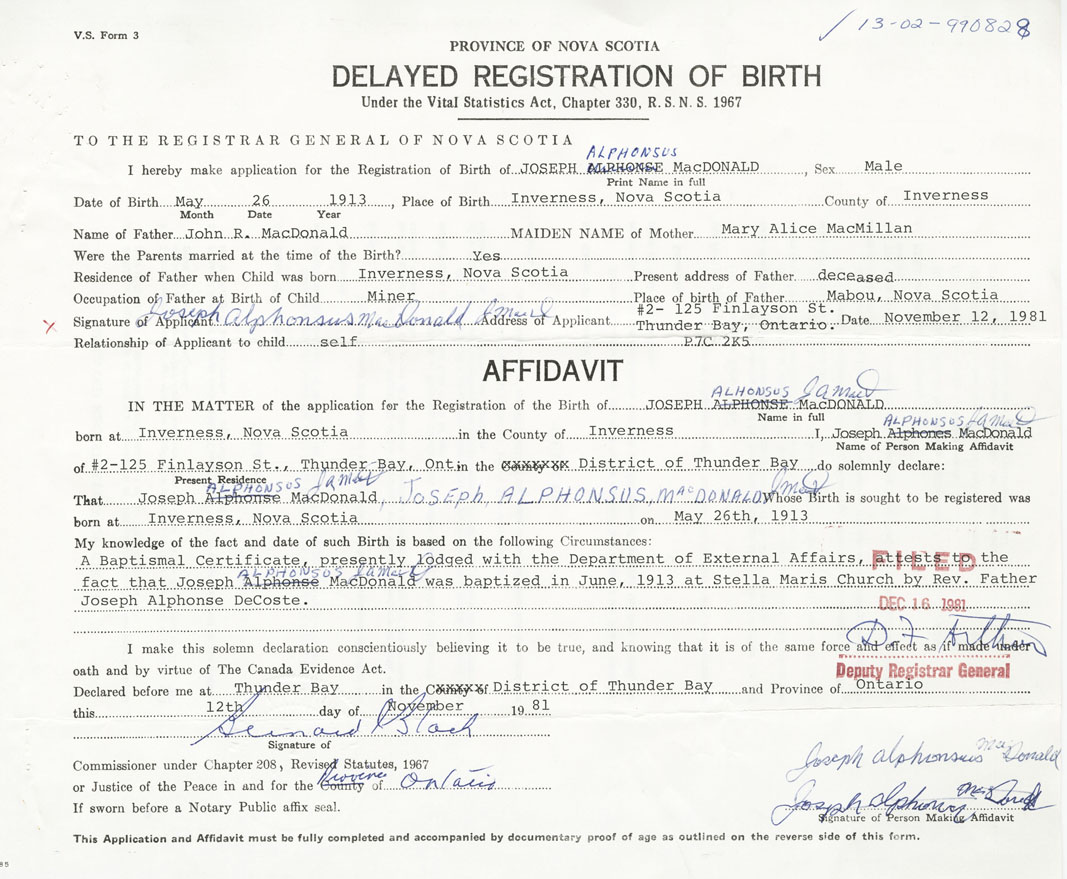 13-02-990828
V.S. Form 3
PROVINCE OF NOVA SCOTIA
DELAYED REGISTRATION OF BIRTH
Under the Vital Statistics Act, Chapter 330, R. S. N. S. 1967
TO THE REGISTRAR GENERAL OF NOVA SCOTIA
ALPHONSUS
I hereby make application for the Registration of Birth of JOSEPH ALPHONSE MacDONALD, Sex Male
Print Name in full
Date of Birth May 26 1913, Place of Birth Inverness, Nova Scotia County of Inverness
Month Date Year
Name of Father John R. MacDonald MAIDEN NAME of Mother Mary Alice MacMillan
Were the Parents married at the time of the Birth? Yes
Residence of Father when Child was born Inverness, Nova Scotia Present address of Father deceased
Occupation of Father at Birth of Child Miner Place of birth of Father Mabou, Nova Scotia
Signature of Applicant Joseph Alphonsus MacDonald Address of Applicant #2- 125 Finlayson St. Thunder Bay, Ontario. Date November 12, 1981
Relationship of Applicant to child self P7C 2K5
AFFIDAVIT
ALHONSUS
IN THE MATTER of the application for the Registration of the Birth of JOSEPH ALPHONSE MacDONALD
Name in full
ALPHONSUS
born at Inverness, Nova Scotia in the County of Inverness I, Joseph Alphones MacDonald
Name of Person Making Affidavit
of #2-125 Finlayson St., Thunder Bay, Ont. in the District of Thunder Bay do solemnly declare:
Present Residence
ALPHONSUS
That Joseph Alphonse MacDonald, JOSEPH, ALPHONSUS, MACDONALD Whose Birth is sought to be registered was
born at Inverness, Nova Scotia on May 26th, 1913
My knowledge of the fact and date of such Birth is based on the following Circumstances:
A Baptismal Certificate, presently lodged with the Department of External Affairs, attests to the
FILED
ALPHONSUS
fact that Joseph Alphonse MacDonald was baptized in June, 1913 at Stella Maris Church by Rev. Father
Joseph Alphonse DeCoste.
DEC 16 1981
I make this solemn declaration conscientiously believing it to be true, and knowing that it is of the same force and effect as if made under
oath and by virtue of The Canada Evidence Act.
Deputy Registrar General
Declared before me at Thunder Bay in the County of District of Thunder Bay and Province of Ontario
this 12th day of November 1981
Signature of
Commissioner under Chapter 208, Revised Statutes, 1967
Province
or Justice of the Peace in and for the County of Ontario
If sworn before a Notary Public affix seal.
Joseph Alphonsus MacDonald
Joseph Alphonsus MacDonald
Signature of Person Making Affidavit
This Application and Affidavit must be fully completed and accompanied by documentary proof of age as outlined on the reverse side of this form.
85